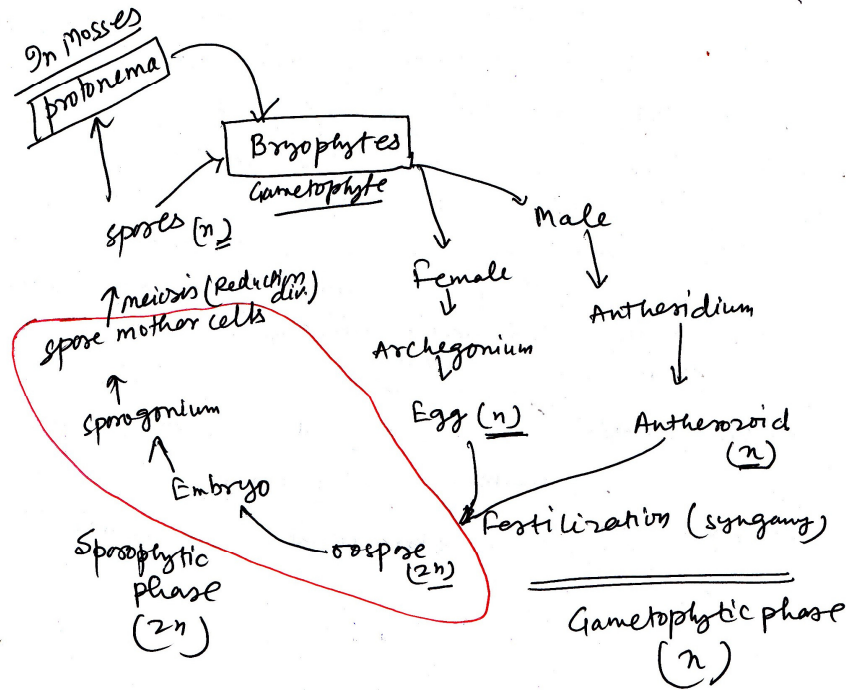 In Mosses
protonema
Bryophytes
Gametophyte
spores (n)
Male
Female
meiosis (Reduction div.)
spore mother cells
Antheridium
Archegonium
Sporogonium
Egg (n)
Antherozoid
(n)
Embryo
Fertilization (syngamy)
oospore
(2n)
Sporophytic
phase
(2n)
Gametophytic phase
(n)